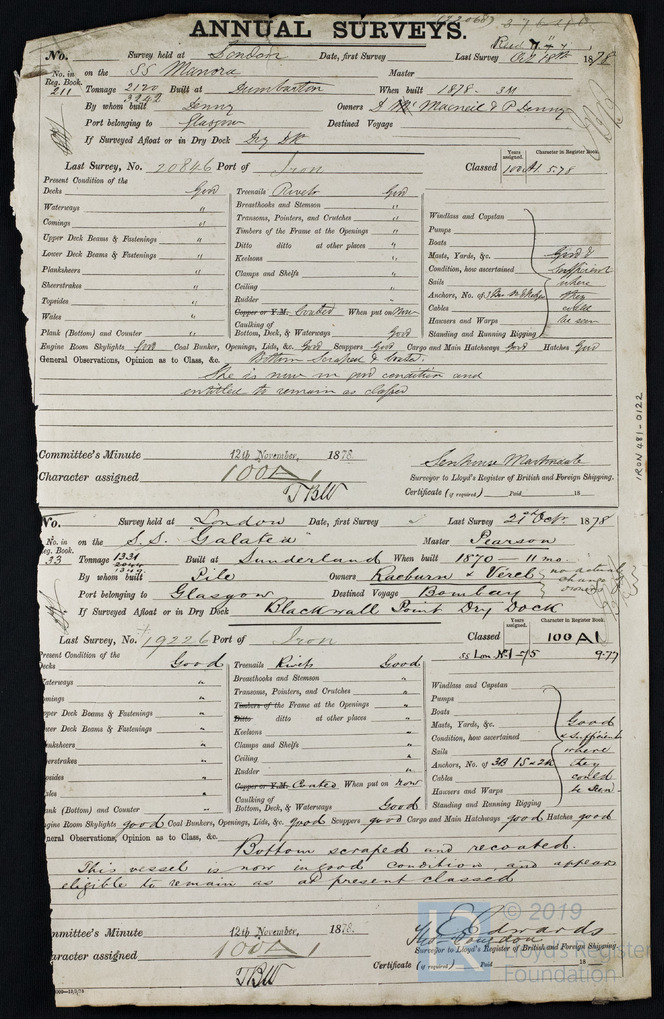 ANNUAL SURVEYS.
No. Survey held at London Date, first Survey Last Survey Oct 18th 1878
No. in on the SS Manora Master
Reg. Book.
211 Tonnage 2120 Built at Dumbarton When built 1878 - 3M
3242
By whom built Denny Owners D McNeil & P Denny
Port belonging to Glasgow Destined Voyage
If Surveyed Afloat or in Dry Dock Dry Dk
Years assigned. Character in Register Book.
Last Survey, No. 20846 Port of Iron Classed 100 A1. 5.78
Present Condition of the
Decks Good Treenails Rivets Good
Waterways " Breasthooks and Stemson " Windlass and Capstan
Comings " Transoms, Pointers, and Crutches " Pumps
Upper Deck Beams & Fastenings " Timbers of the Frame at the Openings " Boats
Lower Deck Beams & Fastenings " Ditto ditto at other places " Masts, Yards, &c. Good &
Planksheers " Keelsons " Condition, how ascertained sufficient
Sheerstrakes " Clamps and Shelfs " Sails where
Topsides " Ceiling " Anchors, No. of they
Wales " Rudder " Cables could
Copper or Y.M. Coated When put on Now Hawsers and Warps be seen
Plank (Bottom) and Counter " Caulking of Bottom, Deck, & Waterways Good Standing and Running Rigging
Engine Room Skylights Good Coal Bunker, Openings, Lids, &c. Good Scuppers Good Cargo and Main Hatchways Good Hatches Good
General Observations, Opinion as to Class, &c. Bottom Scraped & Coated.
She is now in good condition and
entitled to remain as classed
Committee's Minute 12th November, 1878.
Character assigned 100A1
TBW
Surveyor to Lloyd's Register of British and Foreign Shipping.
Certificate (if required) Paid 18
IRON 481-0122
No. Survey held at London Date, first Survey Last Survey 21st Oct. 1878
No. in on the S.S. "Galatea" Master Pearson
Reg. Book.
33 Tonnage 1331 Built at Sunderland When built 1870 - 11 mo.
2044
1342
By whom built Pile Owners Raeburn & Verel no actual change owners
Port belonging to Glasgow Destined Voyage Bombay
If Surveyed Afloat or in Dry Dock Blackwall Point Dry Dock
Years assigned. Character in Register Book.
Last Survey, No. 19226 Port of Iron Classed 100 A1
SS Lon No1-75 9-77
Present Condition of the
Decks Good Treenails Rivets Good
Waterways " Breasthooks and Stemson " Windlass and Capstan
Comings " Transoms, Pointers, and Crutches " Pumps
Upper Deck Beams & Fastenings " Timbers of the Frame at the Openings " Boats
Lower Deck Beams & Fastenings " Ditto ditto at other places " Masts, Yards, &c. Good
Planksheers " Keelsons " Condition, how ascertained & sufficient
Sheerstrakes " Clamps and Shelfs " Sails where
Topsides " Ceiling " Anchors, No. of 3B 1S & 2K they
Wales " Rudder " Cables could
Copper or Y.M. Coated When put on now Hawsers and Warps be seen.
Plank (Bottom) and Counter " Caulking of Bottom, Deck, & Waterways Good Standing and Running Rigging
Engine Room Skylights good Coal Bunkers, Openings, Lids, &c. good Scuppers good Cargo and Main Hatchways good Hatches good
General Observations, Opinion as to Class, &c. Bottom scraped and recoated.
This vessel is now in good condition and appears
eligible to remain as at present classed
Committee's Minute 12th November, 1878.
Character assigned 100A1
TBW
E Edwards
Thos Congdon
Surveyor to Lloyd's Register of British and Foreign Shipping.
Certificate (if required) Paid 18
© 2019
Lloyd's Register
Foundation